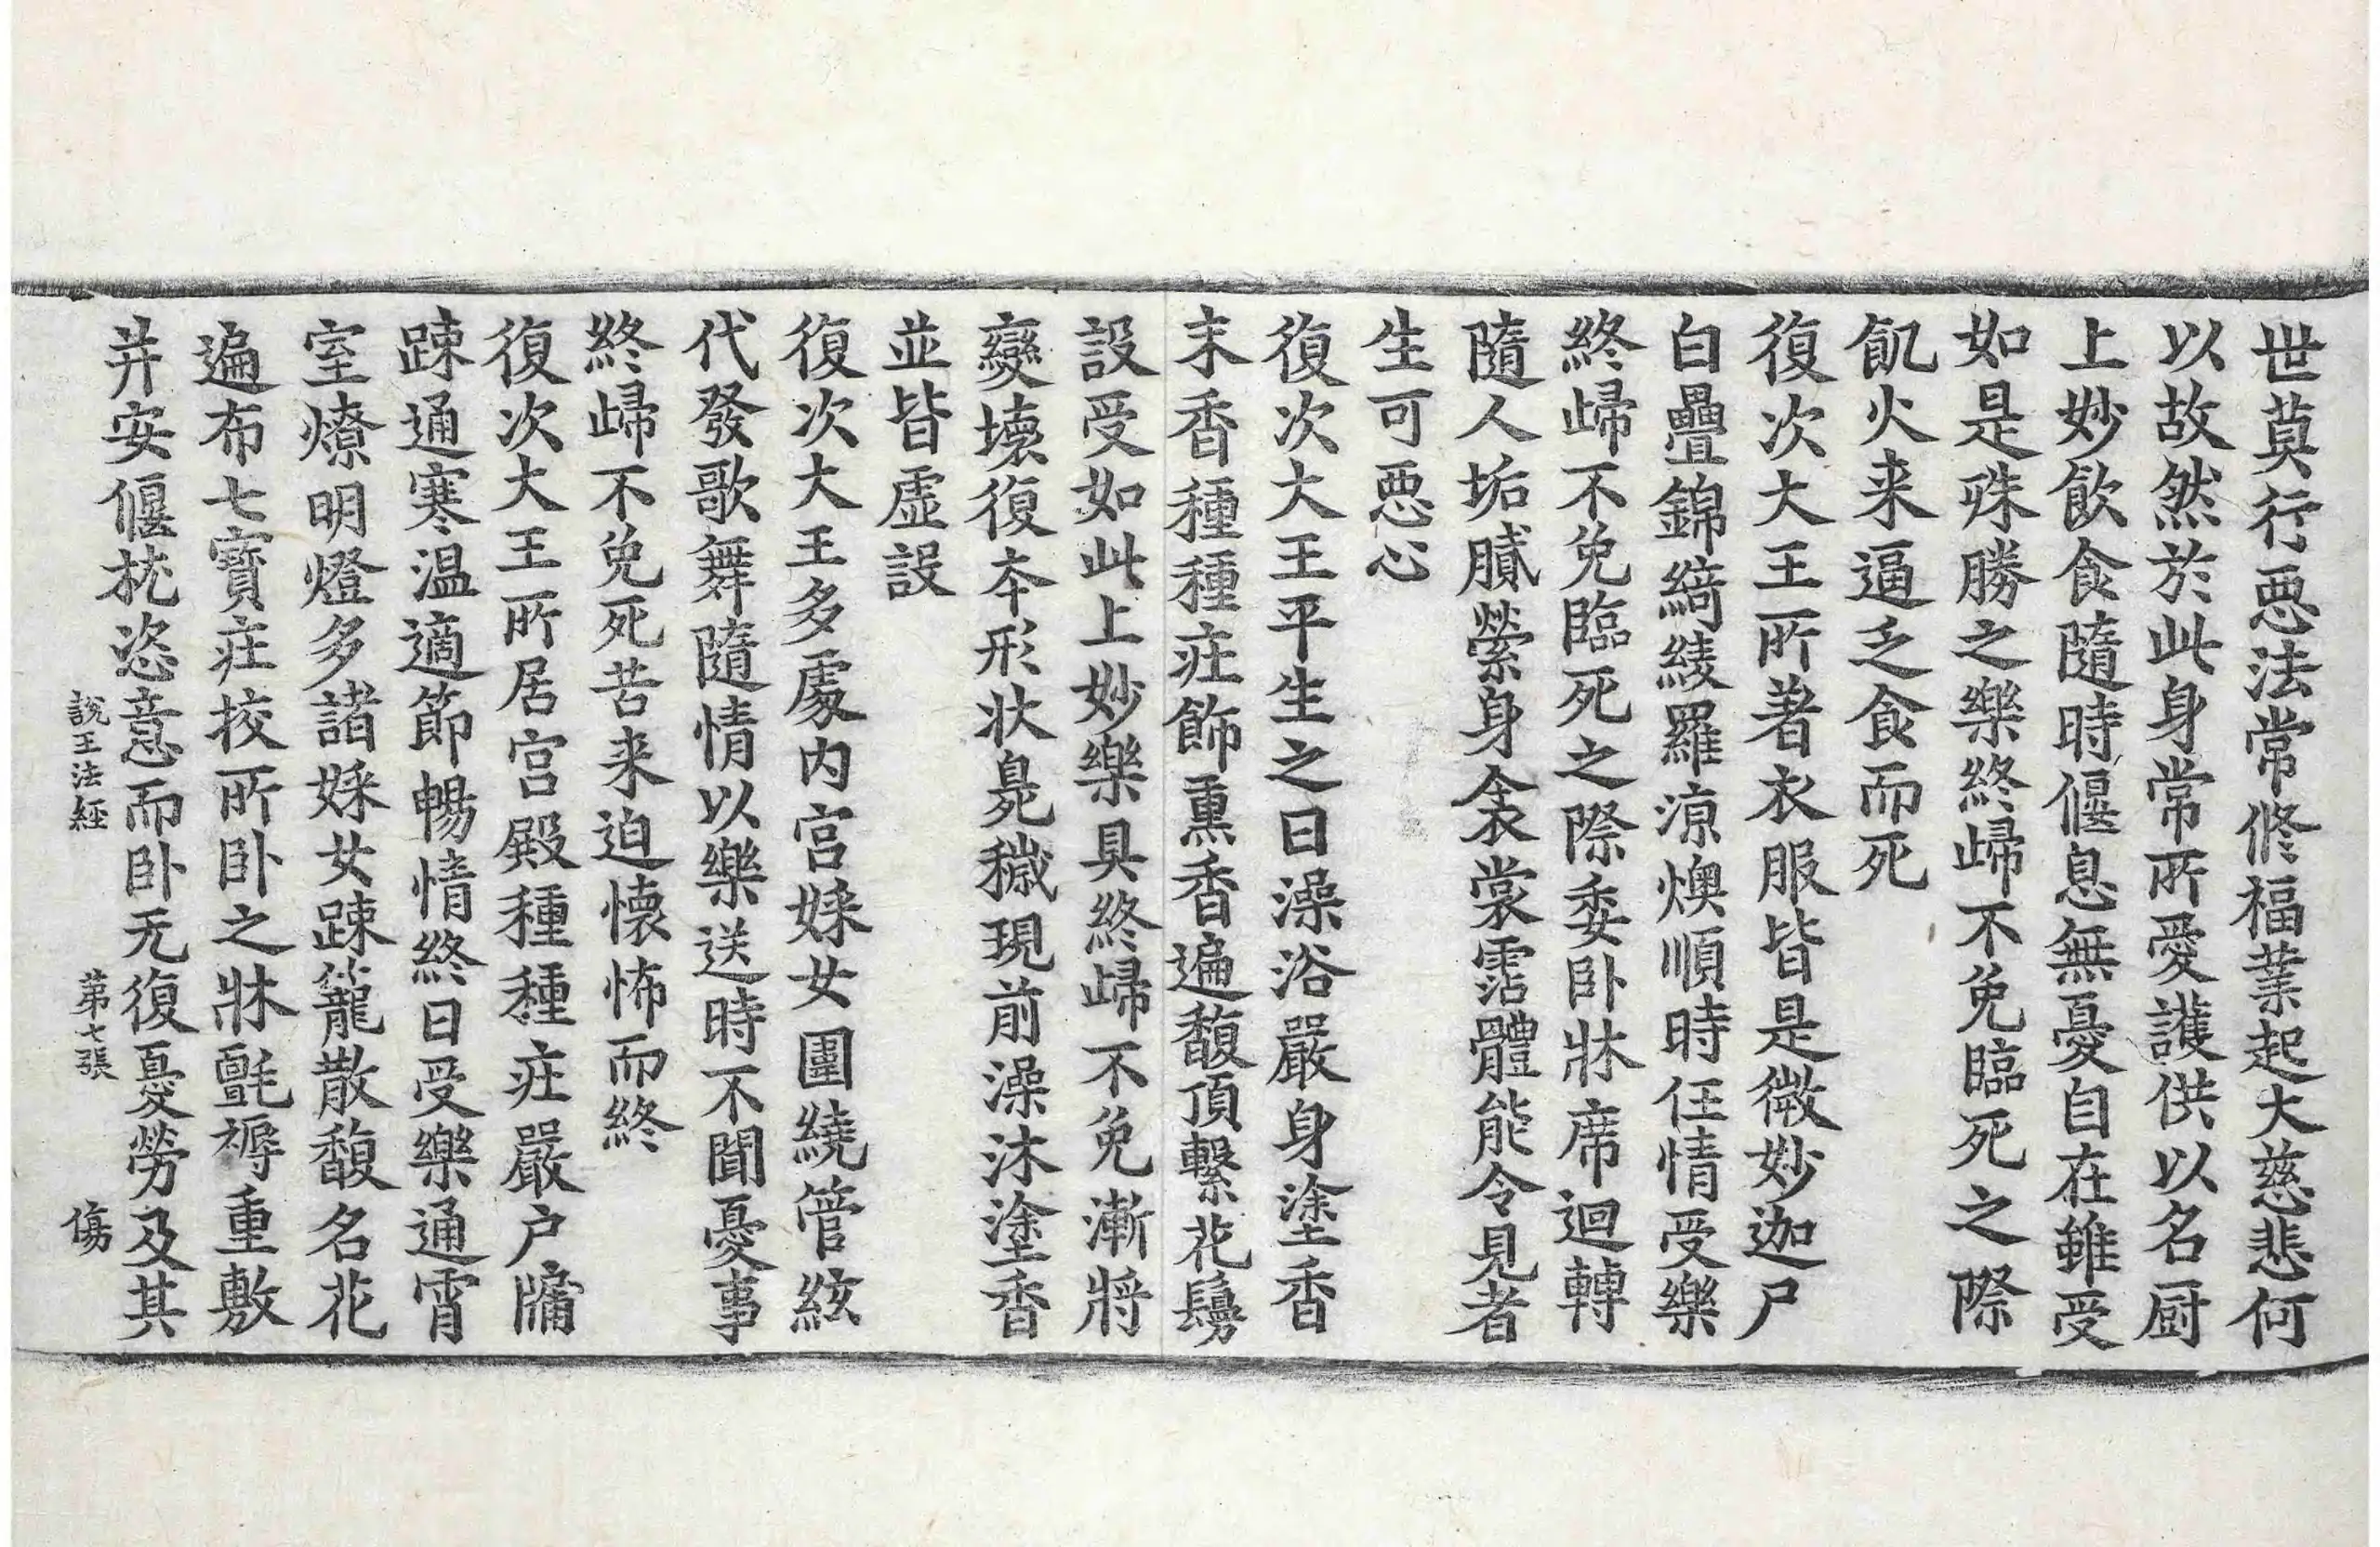 世莫行惡法常修福業起大慈悲何
以故然於此身常所愛護供以名厨
上妙飲食隨時偃息無憂自在雖受
如是殊勝之樂終歸不免臨死之際
飢火来逼乏食而死
復次大王所著衣服皆是微妙迦尸
白疊錦綺綾羅凉燠順時任情受樂
終歸不免臨死之際委卧牀席迴轉
隨人垢膩縈身衾裳霑體能令見者
生可惡心
復次大王平生之日澡浴嚴身塗香
末香種種莊飾熏香遍馥頂繫花鬘
設受如此上妙樂具終歸不免漸將
變壞復本形狀臭穢現前澡沐塗香
並皆虛設
復次大王多處內宮婇女圍繞管絃
代發歌舞隨情以樂送時不聞憂事
終歸不免死苦来迫懷怖而終
復次大王所居宮殿種種莊嚴户牖
踈通寒温適節暢情終日受樂通宵
室燎明燈多諸婇女踈籠散馥名花
遍布七寶莊挍所卧之牀氈褥重敷
并安偃枕恣意而卧无復憂勞及其
說王法経 第七張 傷